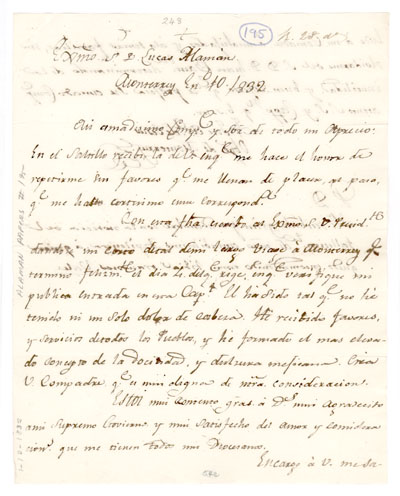 243
195
Exmo Sr D. Lucas Alaman.
Monterrey En.o 10. /1832
Mi amadisimo Comp.e y Sor de todo mi Aprecio:
En el Saltillo recibi la de V. en q.e me hace el honor de
repetirme sus favores q.e me llenan de placer, al paso,
q.e me hallo cortisimo en su correspond.a
Con esta fha escribo al Exmo S. V. Presid.te
dandole un corto detal de mi largo Viage á Monterrey q.e
termine feliz.te el dia
publica entrada en esta Cap.l El há sido tal q.e no he
tenido ni un solo dolor de cabeza. He recibido favores,
y servicios de todos los Pueblos, y he formado el mas eleva-
do concepto de la docilidad, y dulzura mexicana. Crea
V. Compadre, q.e es mui digna de nra. consideracion.
Estoi mui contento, gra.s á D.s mui Agradecido
ami Supremo Govierno y mui satisfecho del amor y considera
cion.s que me tienen todos mis Diocesanos.
Encargo á V. me sa-
ALAMAN PAPERS